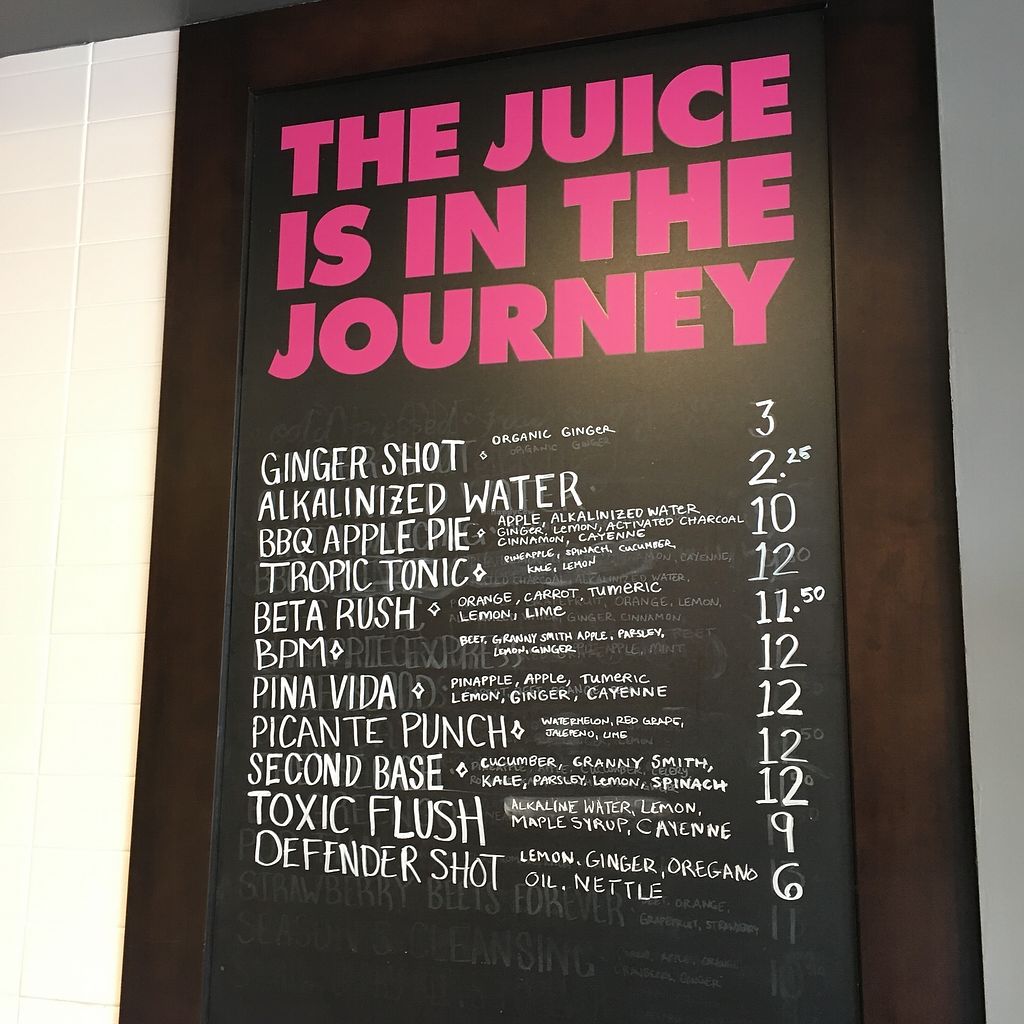 THE JUICE
IS IN THE
JOURNEY
GINGER SHOT ORGANIC GINGER 3
ORGANIC GINGER
ALKALINIZED WATER 2.25
BBQ APPLE PIE APPLE, ALKALINIZED WATER 10
GINGER, LEMON, ACTIVATED CHARCOAL
CINNAMON, CAYENNE
TROPIC TONIC PINEAPPLE, SPINACH, CUCUMBER, 12
KALE, LEMON
BETA RUSH ORANGE, CARROT, TUMERIC 11.50
LEMON, LIME
BPM BEET, GRANNY SMITH APPLE, PARSLEY, 12
LEMON, GINGER
PINA VIDA PINAPPLE, APPLE, TUMERIC 12
LEMON, GINGER, CAYENNE
PICANTE PUNCH WATERMELON, RED GRAPE, 12
JALEPENO, LIME
SECOND BASE CUCUMBER, GRANNY SMITH, 12
KALE, PARSLEY, LEMON, SPINACH
TOXIC FLUSH ALKALINE WATER, LEMON, 9
MAPLE SYRUP, CAYENNE
DEFENDER SHOT LEMON. GINGER, OREGANO 6
OIL. NETTLE
STRAWBERRY BEETS FOREVER ORANGE, 11
GRAPEFRUIT, STRAWBERRY
SEASON'S CLEANSING APPLE, 10
CRANBERRY, GINGER